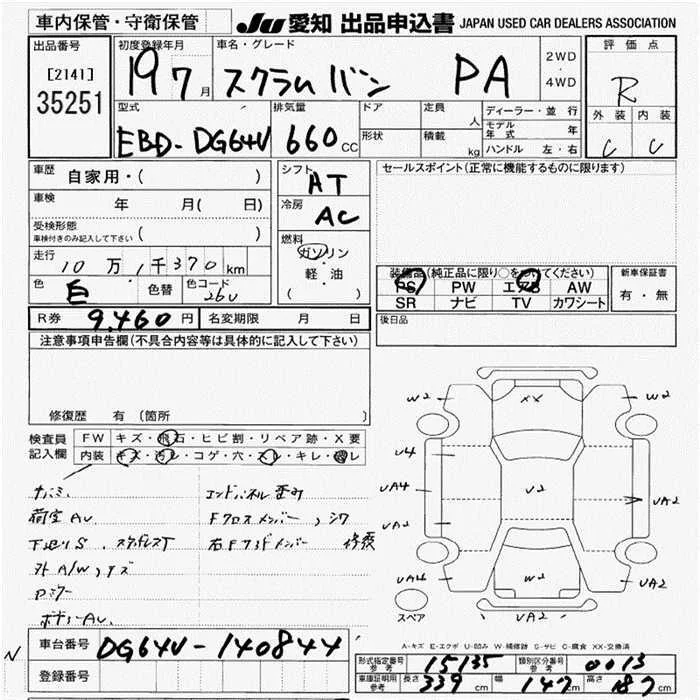 車内保管・守衛保管
JU 愛知 出品申込書 JAPAN USED CAR DEALERS ASSOCIATION
出品番号
[2141]
35251
初度登録年月
19 7月
車名・グレード
スクラムバン PA
2WD
・
4WD
評価点
R
外装 内装
C C
型式
EBD-DG64V
排気量
660 CC
ドア
形状
定員
人
積載
kg
ディーラー・並行
モデル年式 年
ハンドル 左・右
車歴 自家用・( )
車検 年 月( 日)
受検形態
車検付きのみ記入して下さい ( )
走行
10万1千370km
色 色替 色コード
26U
シフト
AT
冷房
AC
燃料
ガソリン
・
軽・油
( )
セールスポイント(正常に機能するものに限ります)
装備品(純正品に限り○をつけてください)
PS PW エアB AW
SR ナビ TV カワシート
新車保証書
有・無
後日品
R券 9,460円 名変期限 月 日
注意事項申告欄(不具合内容等は具体的に記入して下さい)
修復歴 有 (箇所 )
検査員
記入欄
FW キズ・飛石・ヒビ割・リペア跡・X要
内装 キズ・汚レ・コゲ・穴・スレ・キレ・
エンドパネル歪み
荷室AU
下廻りS
外A/Wキズ
ボディーAU
W2 XX W2
U4
UA4 U2 UA2
UA2
UA4 W2 UA2
UA2
スペア
A-キズ E-エクボ U-凹み W-補修跡 S-サビ C-腐食 XX-交換済
N
車台番号 DG64V-140844
登録番号
形式指定番号
参考
15135
類別区分番号
参考
0013
車庫証明用
参考
長さ 339cm 幅 147cm 高さ 187cm